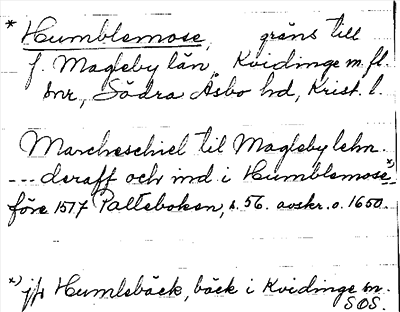 * Humblemose, gräns till
f. Magleby län, Kvidinge m. fl.
snr, Södra Åsbo hd, Krist. l.
Marcheschiel til Magleby lehn.
--- deraff och ind i Humblemose *)
före 1517 Palteboken, s. 56. avskr. o. 1650.
*) jfr Humlebäck, bäck i Kvidinge sn.
SOS.